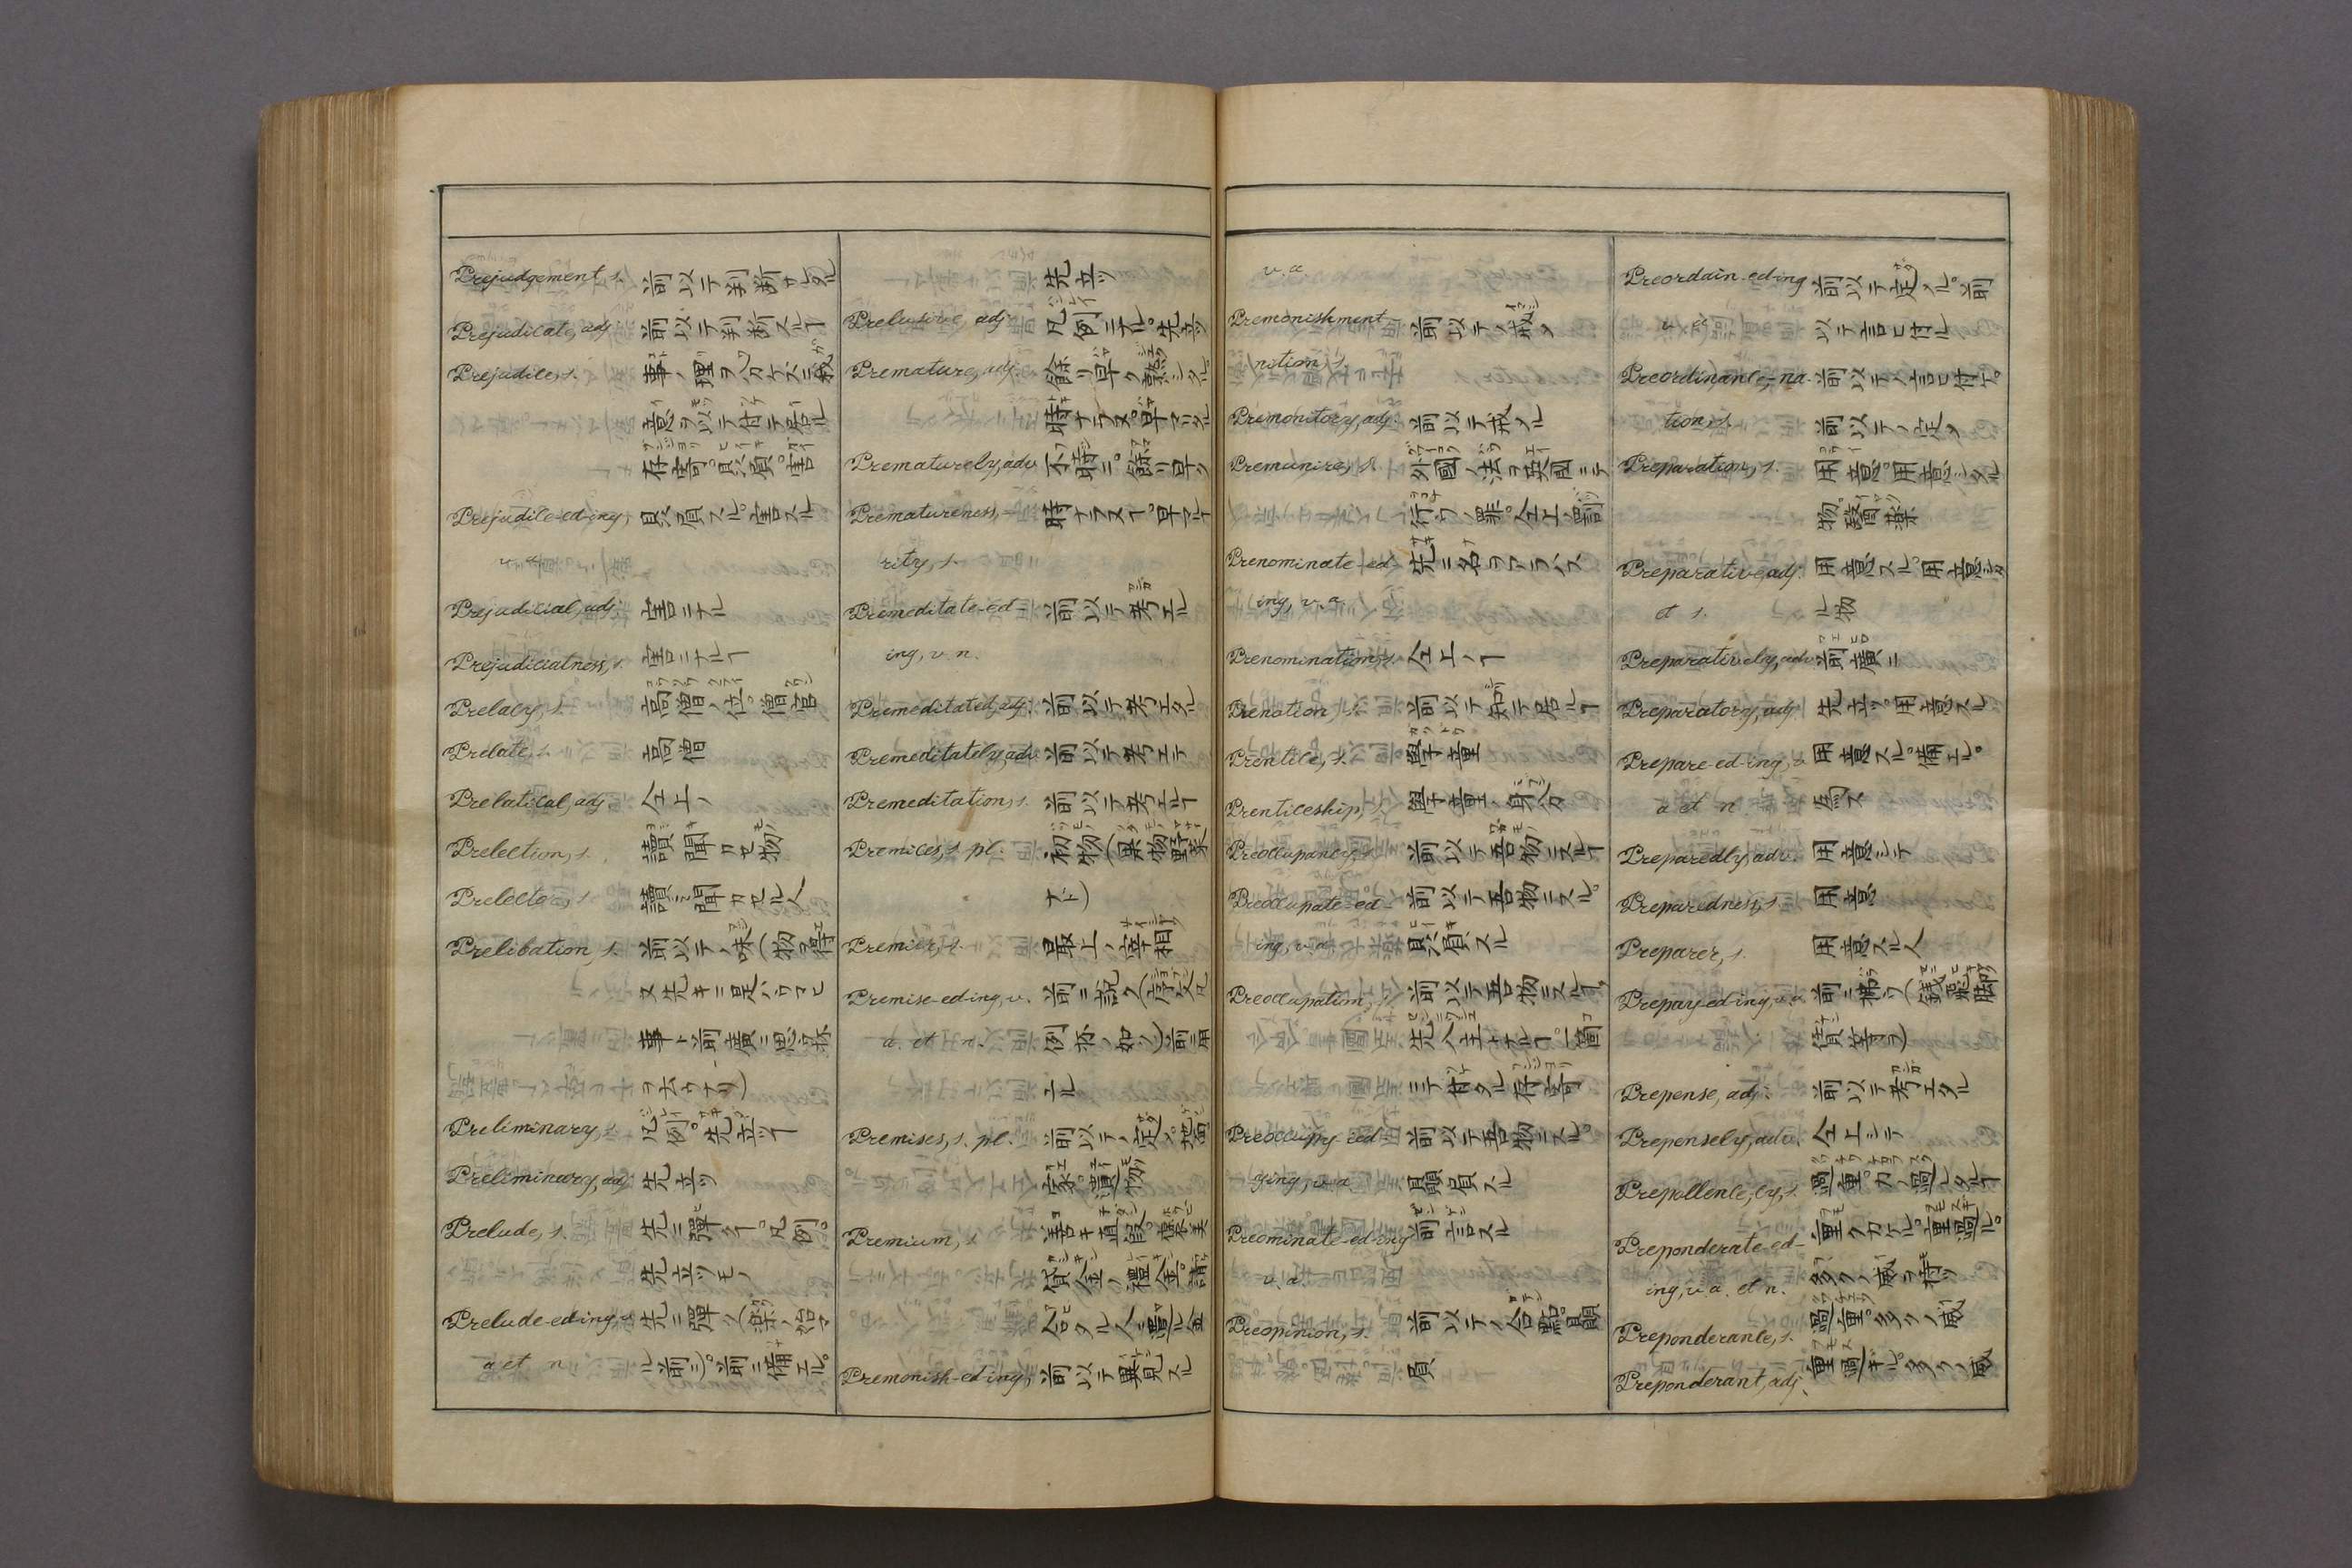 Prejudgement, s. 前以テ判断サレタル
Prejudicate, adj. 前以テ判断スルヿ
Prejudice, s. 事ノ理ヲ分ケズニ我
意ヲ以テ付テ居ル
存寄。贔負。害
Prejudice-ed-ing, 贔負スル。害スル
v. a.
Prejudicial, adj. 害ニナル
Prejudicialness, s. 害ニナルヿ
Prelacy, s. 高僧ノ位。僧官
Prelate, s. 高僧
Prelatical, adj. 仝上ノ
Prelection, s. 讀聞カセ物
Prelector, s. 讀ミ聞カセル人
Prelibation, s. 前以テノ味(物ヲ得
又先キニ見ハウマヒ
事ト前廣ニ思フ抔
ヲ云フナリ)
Preliminary, s. 凡例。先立ツヿ
Preliminary, adj. 先立ツ
Prelude, s. 先ニ彈クヿ。凡例。
先立ツモノ
Prelude-ed-ing, v. 先ニ彈ク(樂ノ始マ
a et n. ル前ニ)。前ニ備エル。
先立ツ
Prelusive, adj. 凡例ニナル。先立ツ
Premature, adj. 餘リ早ク熟シタル
時ナラヌ。早マツタル
Prematurely, adv. 不時ニ。餘リ早ク
Prematureness, 時ナラヌヿ。早マルヿ
rity, s.
Premeditate-ed- 前以テ考エル
ing, v. n.
Premeditated, adj. 前以テ考エタル
Premeditately, adv. 前以テ考エテ
Premeditation, s. 前以テ考エルヿ
Premices, s. pl. 初物(果物野菜
ナド)
Premier, s. 最上ノ宰相
Premise-ed-ing, v. 前ニ説ク(序文凡
a. et n. 例抔ノ如ク)前ニ備
エル
Premises, s. pl. 前以テノ定メ。地面
家。遺物
Premium, s. 善キ直段。褒美
貸金ノ禮金。請
合タル人ニ遣ル金
Premonish-ed-ing, 前以テ異見スル
v. a
Premonishment 前以テノ戒メ
nition, s.
Premonitory, adj. 前以テ戒メル
Premunire, s. 外國ノ法ヲ英國ニテ
行フノ罪。仝上ノ罰
Prenominate-ed- 先ニ名ヲアラハス
ing, v. a.
Prenomination, s. 仝上ノヿ
Prenotion, s. 前以テ知テ居ルヿ
Prentice, s. 學童
Prenticeship, s. 學童ノ身分
Preoccupancy, s. 前以テ吾物ニスルヿ
Preoccupate-ed- 前以テ吾物ニスル。
ing, v. a. 贔負スル
Preoccupation, s. 前以テ吾物ニスルヿ,
先入主トナルヿ。一箇
ニテ付タル存寄
Preoccupy-ied- 前以テ吾物ニスル。
ying, v. a 贔負スル
Preominate-ed-ing 前言スル
v. a.
Preopinion, s. 前以テノ合點。贔
負
Preordain-ed-ing 前以テ定メル。前
v. a. 以テ言ヒ付ル
Preordinance,-na- 前以テノ言ヒ付ケ。
tion, s. 前以テノ定メ
Preparation, s. 用意。用意シタル
物。發散藥
Preparative, adj. 用意スル。用意シタ
et s. ル物
Preparatively, adv. 前廣ニ
Preparatory, adj. 先立ツ。用意スル
Prepare-ed-ing, v. 用意スル。備エル。
a et n. 為ス
Preparedly, adv. 用意シテ
Preparedness, s. 用意
Preparer, s. 用意スル人
Prepay-ed-ing, v. a. 前ニ拂フ(錢飛脚
賃等ヲ)
Prepense, adj. 前以テ考エタル
Prepensely, adv. 仝上シテ
Prepollence, cy, s. 過重。力ノ過レタルヿ
Preponderate-ed- 重ク力ケル。重過ル。
ing, v. a. et n. 多クノ威ヲ持ツ
Preponderance, s. 過重。多クノ威
Preponderant, adj. 重過ギル。多クノ威